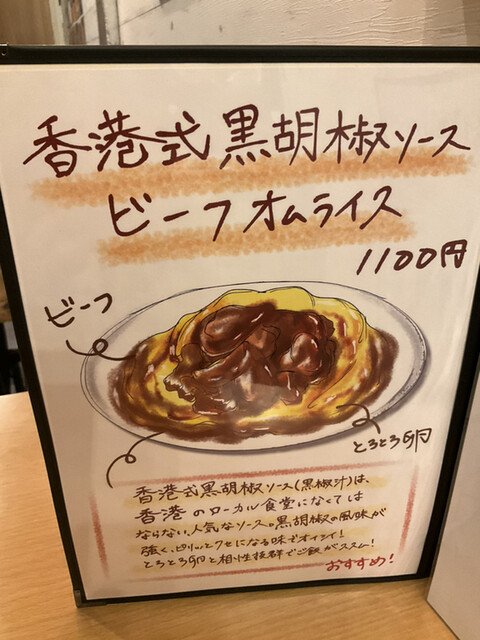 香港式黒胡椒ソース
ビーフオムライス
1100円
ビーフ
とろとろ卵
香港式黒胡椒ソース(黒椒汁)は、
香港のローカル食堂になくては
ならない人気なソース。黒胡椒の風味が
強く、ピリッとクセになる味でオイシイ!
とろとろ卵と相性抜群でご飯がススム!
おすすめ!